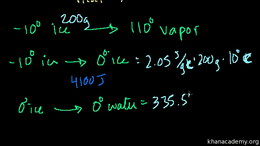 200g
-10° ice → 110° vapor
-10° ice → 0° ice = 2.05 J/g·K · 200g · 10° C
4100 J
0° ice → 0° water = 335.5
khanacademy.org